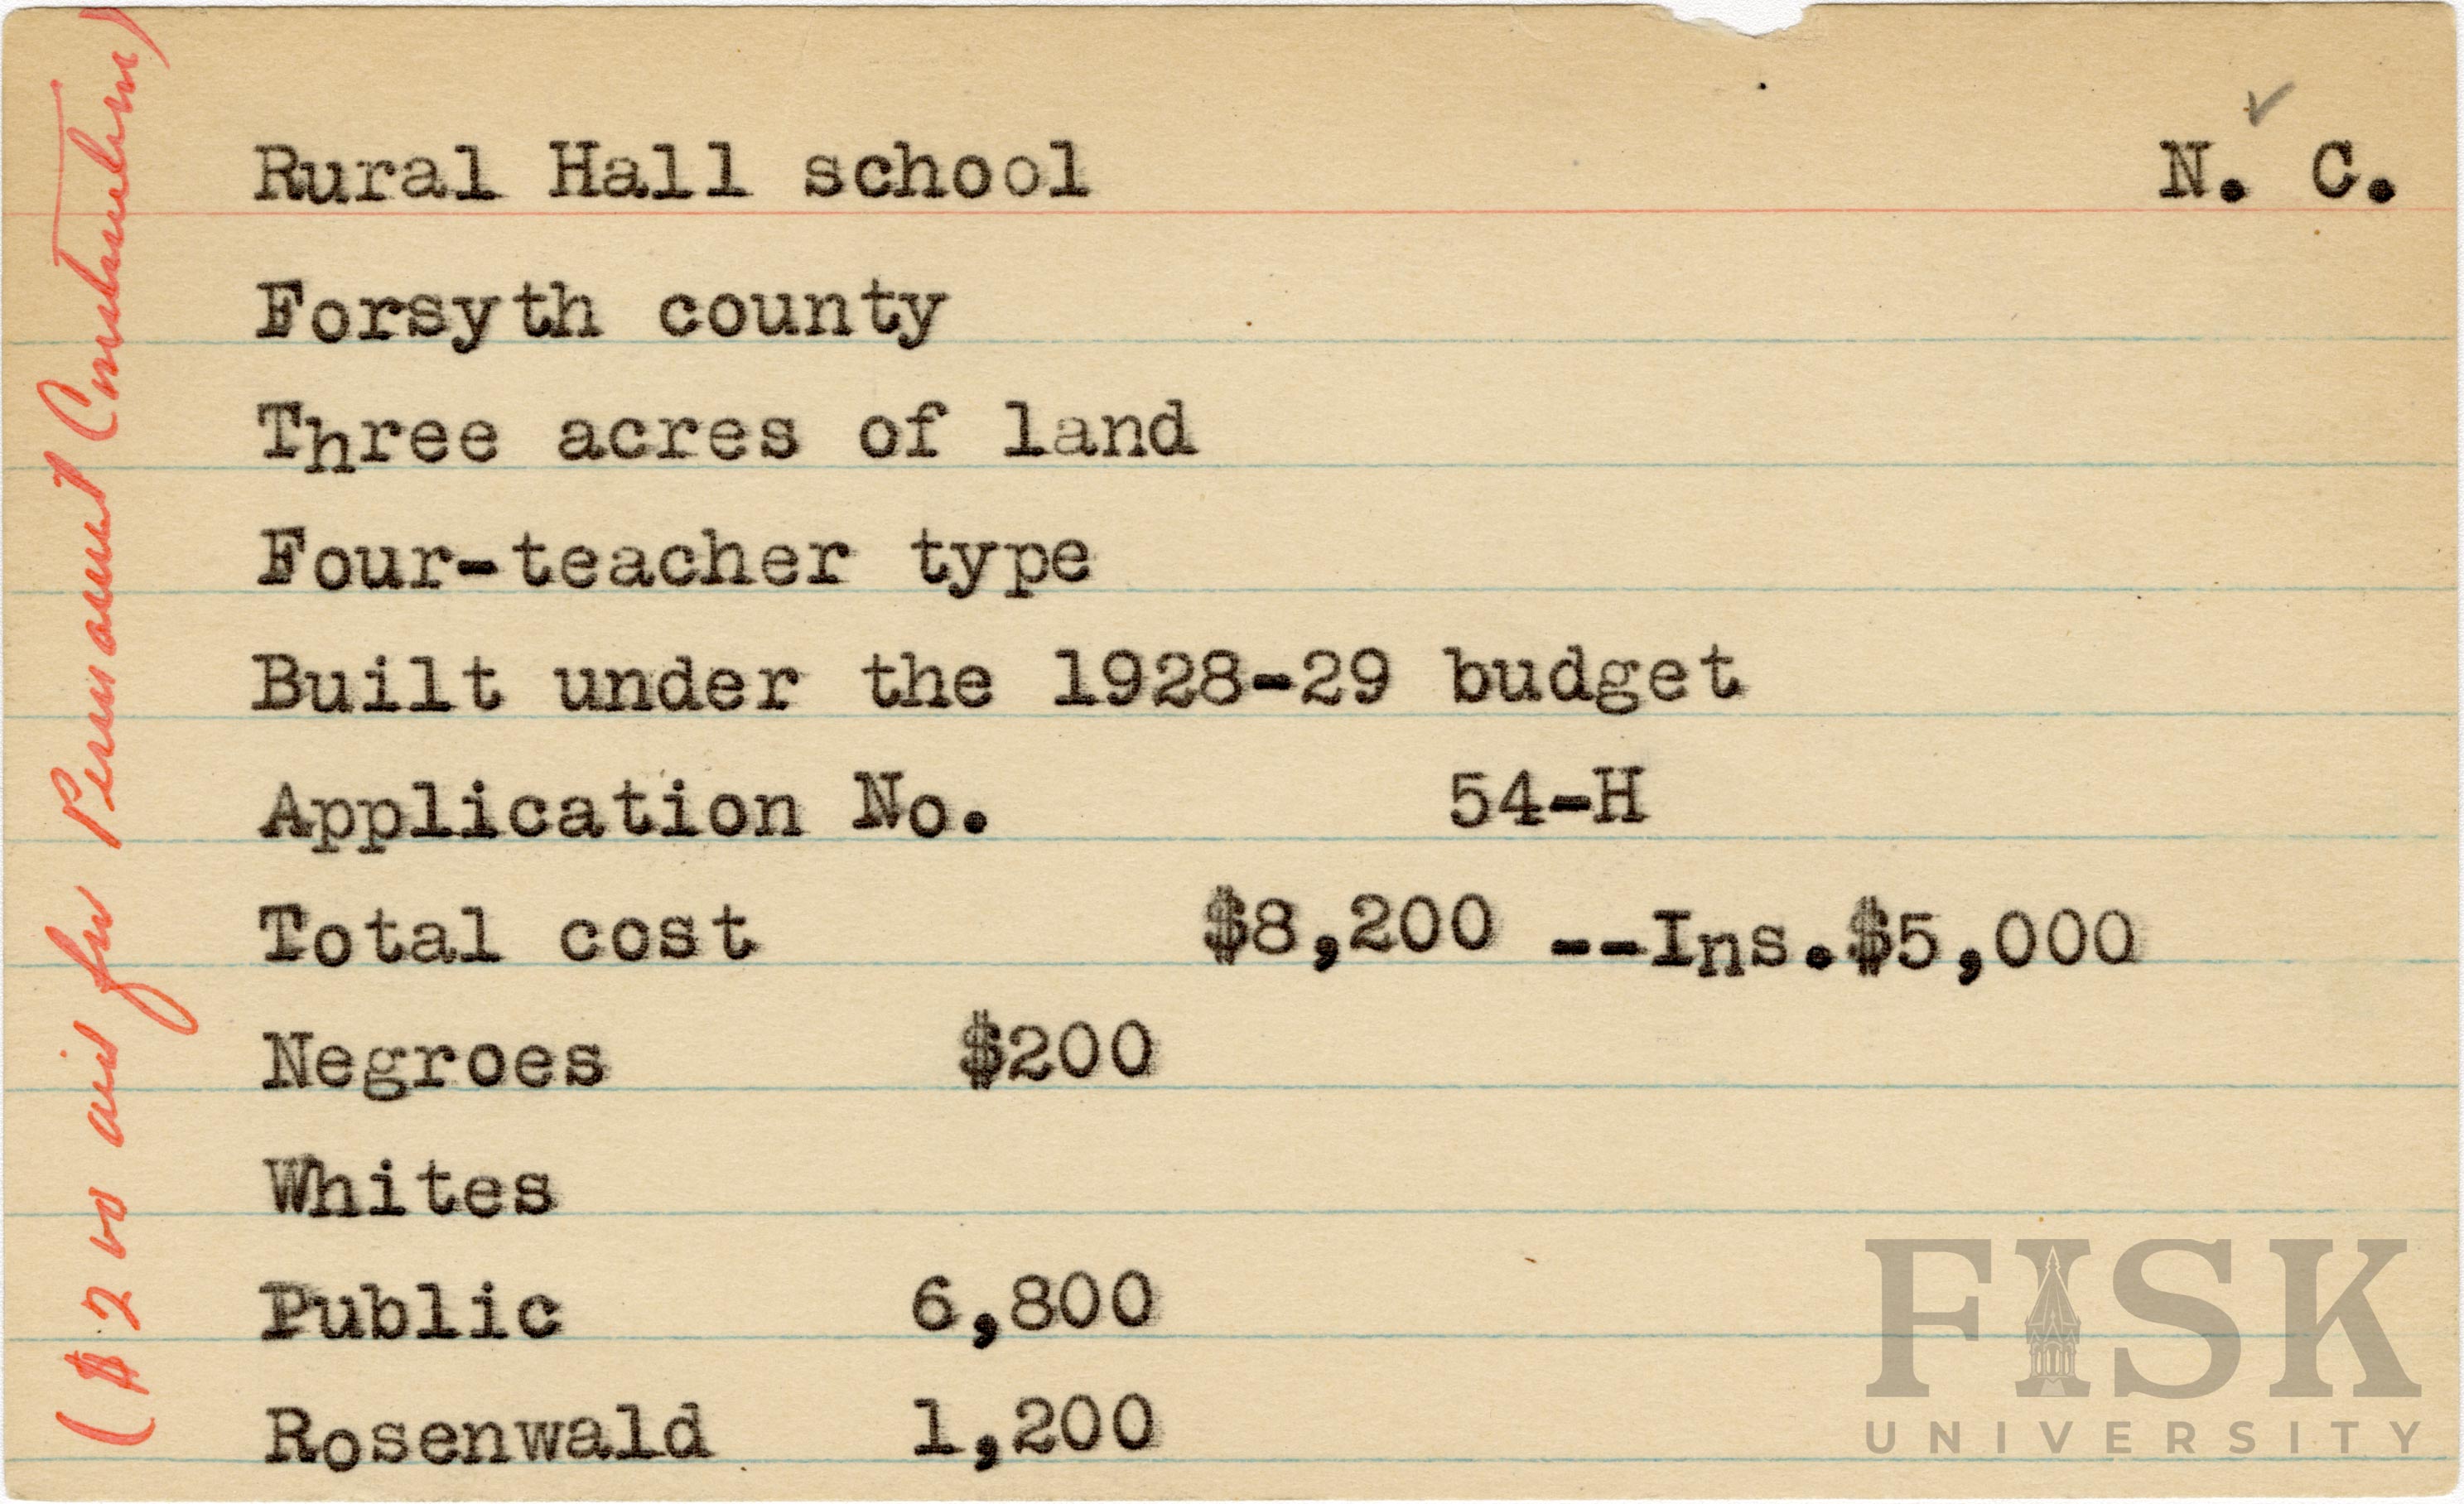 Rural Hall school N. C.
Forsyth county
Three acres of land
Four-teacher type
Built under the 1928-29 budget
Application No. 54-H
Total cost $8,200 --Ins.$5,000
Negroes $200
Whites
Public 6,800
Rosenwald 1,200
($200 aid for Permanent Construction)
FISK
UNIVERSITY